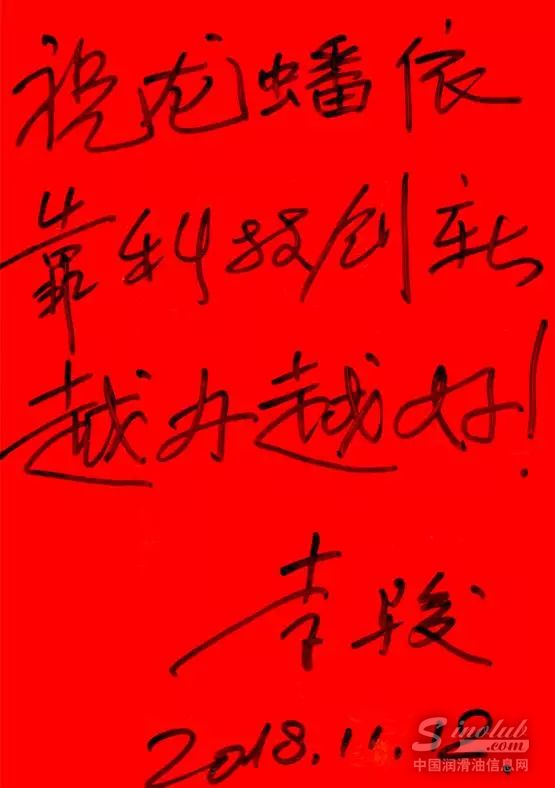 祝龙蟠依
靠科技创新
越办越好!
李骏
2018.11.12
Sinolub.com
中国润滑油信息网